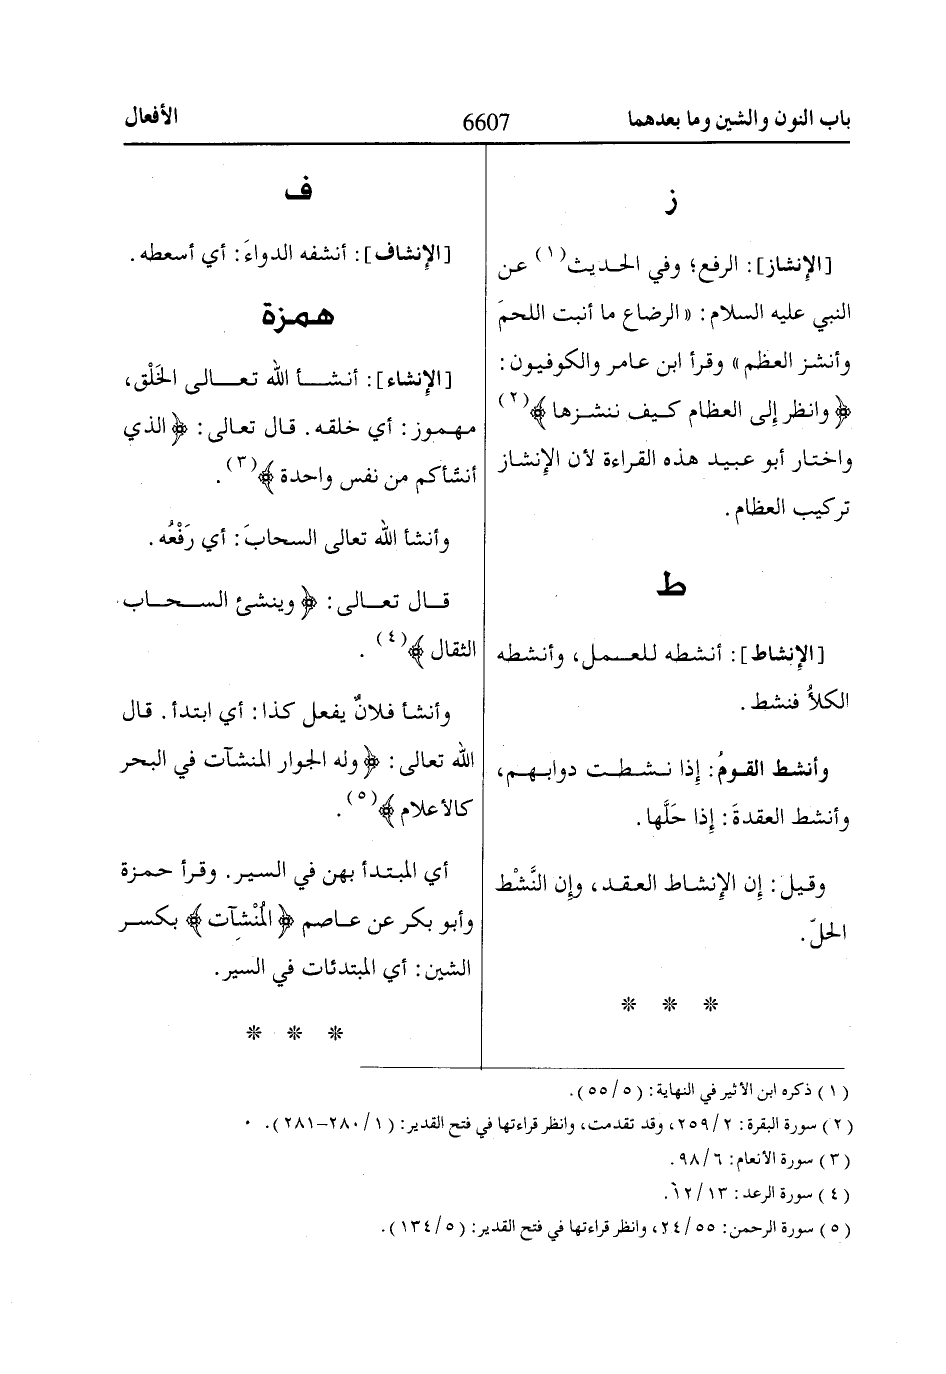 باب النون والشين وما بعدهما
6607
الأفعال
ز
[الإنشاز]: الرفع؛ وفي الحديث(١) عن
النبي عليه السلام: «الرضاع ما أنبت اللحمَ
وأنشز العظم» وقرأ ابن عامر والكوفيون:
﴿وانظر إلى العظام كيف ننشزها﴾(٢)
واختار أبو عبيد هذه القراءة لأن الإنشاز
تركيب العظام.
ط
[الإنشاط]: أنشطه للعمل، وأنشطه
الكلأُ فنشط.
وأنشط القومُ: إذا نشطت دوابهم،
وأنشط العقدةَ: إذا حَلَّها.
وقيل: إن الإنشاط العقد، وإن النَّشْط
الحلّ.
* * *
ف
[الإنشاف]: أنشفه الدواءَ: أي أسعطه.
همزة
[الإنشاء]: أنشأ الله تعالى الخَلْق،
مهموز: أي خلقه. قال تعالى: ﴿الذي
أنشأكم من نفس واحدة﴾(٣).
وأنشأ الله تعالى السحابَ: أي رَفْعُه.
قال تعالى: ﴿وينشئ السحاب
الثقال﴾(٤).
وأنشأ فلانٌ يفعل كذا: أي ابتدأ. قال
الله تعالى: ﴿وله الجوار المنشآت في البحر
كالأعلام﴾(٥).
أي المبتدأ بهن في السير. وقرأ حمزة
وأبو بكر عن عاصم ﴿المُنْشِآت﴾ بكسر
الشين: أي المبتدئات في السير.
* * *
(١) ذكره ابن الأثير في النهاية: (٥/٥٥).
(٢) سورة البقرة: ٢/٢٥٩، وقد تقدمت، وانظر قراءتها في فتح القدير: (١/٢٨٠-٢٨١).
(٣) سورة الأنعام: ٦/٩٨.
(٤) سورة الرعد: ١٣/١٢.
(٥) سورة الرحمن: ٥٥/٢٤، وانظر قراءتها في فتح القدير: (٥/١٣٤).